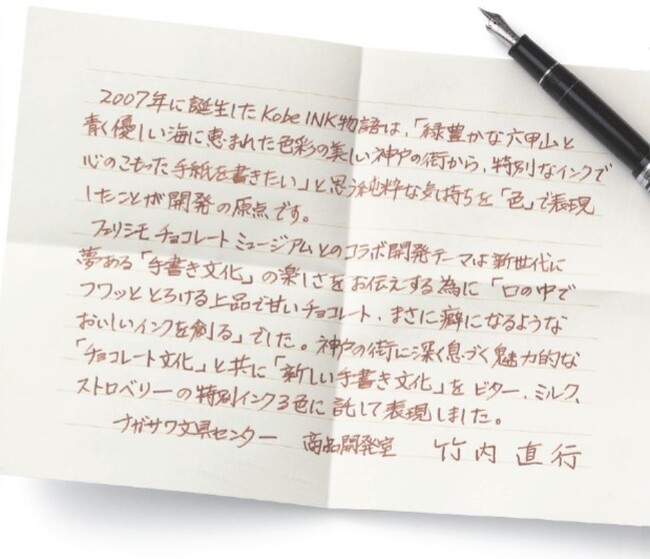 2007年に誕生したKobe INK物語は、「緑豊かな六甲山と
青く優しい海に恵まれた色彩の美しい神戸の街から、特別なインクで
心のこもった手紙を書きたい」と思う純粋な気持ちを「色」で表現
したことが開発の原点です。
フェリシモ チョコレート ミュージアムとのコラボ開発テーマは新世代に
夢ある「手書き文化」の楽しさをお伝えする為に「口の中で
フワッととろける上品で甘いチョコレート、まさに癖になるような
おいしいインクを創る」でした。神戸の街に深く息づく魅力的な
「チョコレート文化」と共に「新しい手書き文化」をビター、ミルク、
ストロベリーの特別インク3色に託して表現しました。
ナガサワ文具センター 商品開発室 竹内直行